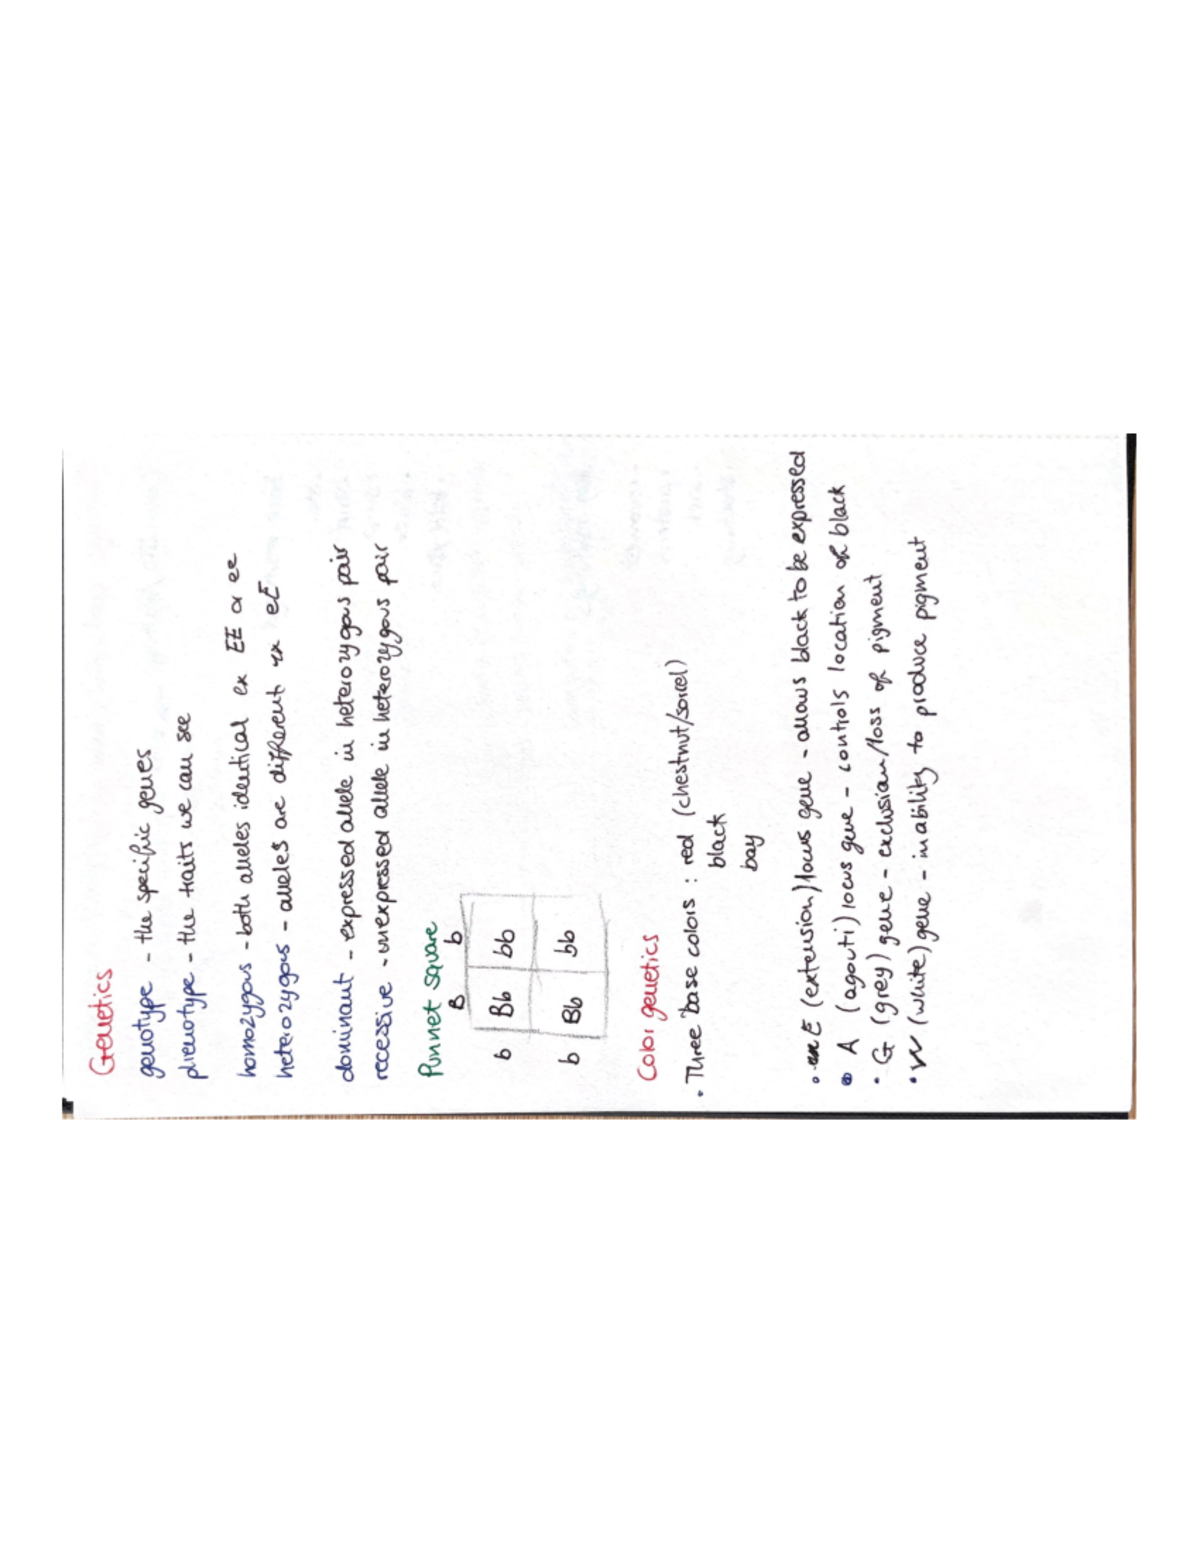 Genetics
genotype - the specific genes
phenotype - the traits we can see
homozygous - both alleles identical ex EE or ee
heterozygous - alleles are different ex eE
dominant - expressed allele in heterozygous pair
recessive - unexpressed allele in heterozygous pair
Punnet square
B b
b Bb bb
b Bb bb
Color genetics
• Three base colors : red (chestnut/sorrel)
black
bay
• E (extension) locus gene - allows black to be expressed
• A (agouti) locus gene - controls location of black
• G (grey) gene - exclusion/loss of pigment
• W (white) gene - inability to produce pigment